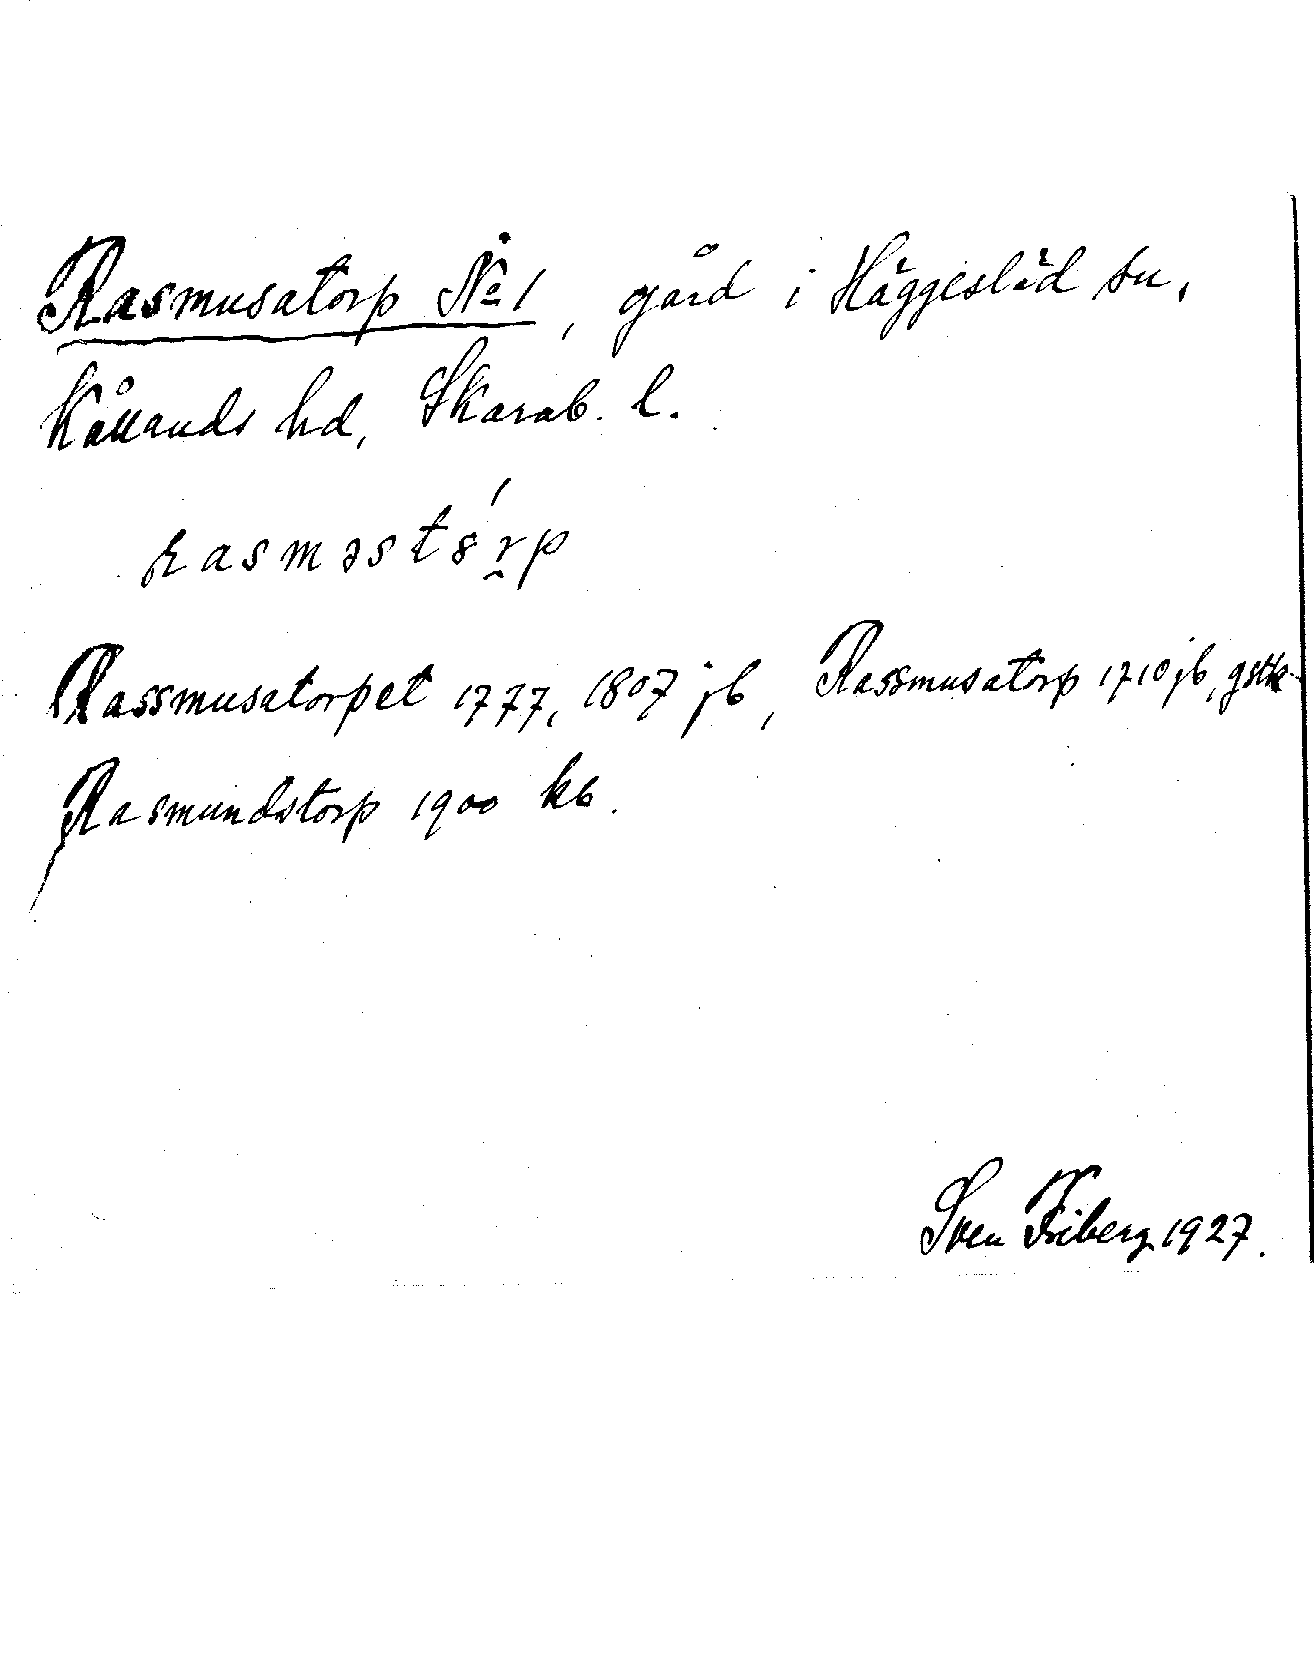 Rasmusatorp No 1, gård i Häggesled sn,
Kållands hd, Skarab. l.
rasməstɞ́r̬p
Rassmusatorpet 1777, 1807 jb, Rassmusatorp 1710 jb, gstk
Rasmundstorp 1900 kb.
Sven Friberg 1927.